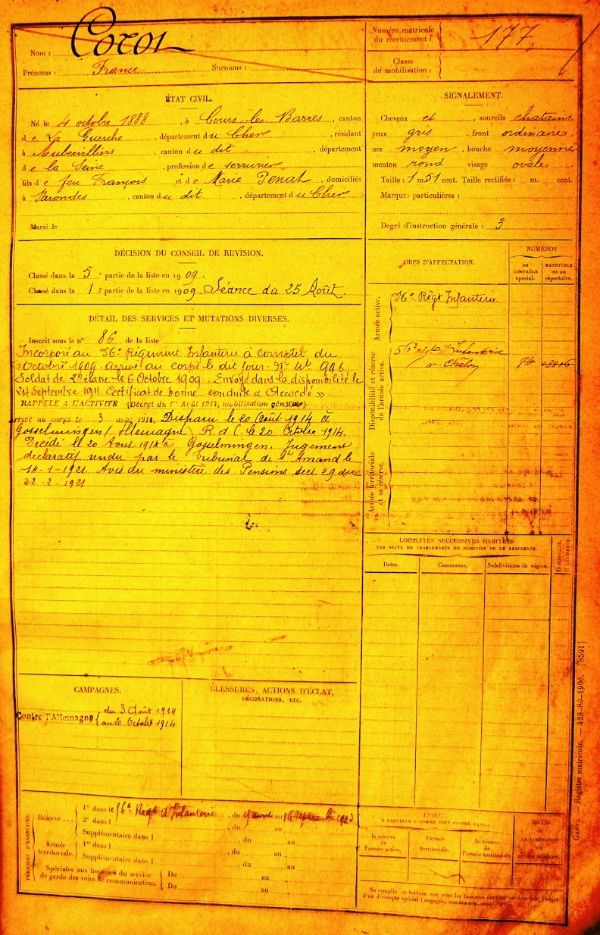 Nom : Corot
Prénoms : France Surnoms :
Numéro matricule du recrutement : 177
Classe de mobilisation :
ÉTAT CIVIL.
Né le 4 octobre 1888, à Cours-les-Barres, canton
de La Guerche, département du Cher, résidant
à Aubervilliers, canton du dit, département
de la Seine, profession de serrurier
fils de feu François et de Marie, domiciliés
à Nérondes, canton du dit, département du Cher
Marié le
SIGNALEMENT.
Cheveux et sourcils chatains
yeux gris, front ordinaire
nez moyen, bouche moyenne
menton rond visage ovale
Taille : 1 m 51 cent. Taille rectifiée : m. cent.
Marques particulières :
Degré d'instruction générale : 3
DÉCISION DU CONSEIL DE REVISION.
Classé dans la 5e partie de la liste en 1909.
Classé dans la 1 partie de la liste en 1909 Séance du 25 Août.
DÉTAIL DES SERVICES ET MUTATIONS DIVERSES.
Inscrit sous le n° 86 de la liste
Incorporé au 56e Régiment Infanterie à compter du
Octobre 1909. Arrivé au corps le dit jour. N° Mle 996
Soldat de 2e classe le 6 Octobre 1909. Envoyé dans la disponibilité le
24 Septembre 1911. Certificat de bonne conduite « Accordé »
RAPPELÉ A L'ACTIVITÉ (Décret du 1er Août 1914, mobilisation générale)
Arrivé au corps le 3 août 1914. Disparu le 20 Août 1914 à
Gosselmingen (Allemagne) R. d. C. le 20 Octobre 1914.
Décédé le 20 Aout 1914 à Gosselmingen. Jugement
déclaratif rendu par le tribunal de St Amand le
14-1-1921. Avis du ministère des Pensions du
22-2-1921
CORPS D'AFFECTATION.
NUMÉROS
DU CONTRÔLE SPÉCIAL.
MATRICULE OU AU RÉPERTOIRE.
Armée active.
56e Régt Infanterie
Disponibilité et réserve de l'armée active.
56e Régt d'Infanterie
Armée territoriale et sa réserve.
LOCALITÉS SUCCESSIVES HABITÉES
PAR SUITE DE CHANGEMENTS DE DOMICILE OU DE RÉSIDENCE.
Dates.
Communes.
Subdivisions de région.
CAMPAGNES.
Contre l'Allemagne du 3 Août 1914
au 20 Octobre 1914
BLESSURES, ACTIONS D'ÉCLAT,
DÉCORATIONS, ETC.
PÉRIODES D'EXERCICES.
Réserve
1re dans le Régt d'Infanterie, du au
2e dans l , du au
Supplémentaire dans l , du au
Armée territoriale.
1re dans l , du au
Supplémentaire dans l , du au
Spéciales aux hommes du service de garde des voies de communication.
Du au
Du au
ÉPOQUE
À LAQUELLE L'HOMME DOIT PASSER DANS :
la réserve de l'armée active.
l'armée territoriale.
la réserve de l'armée territoriale.
Registre matricule.